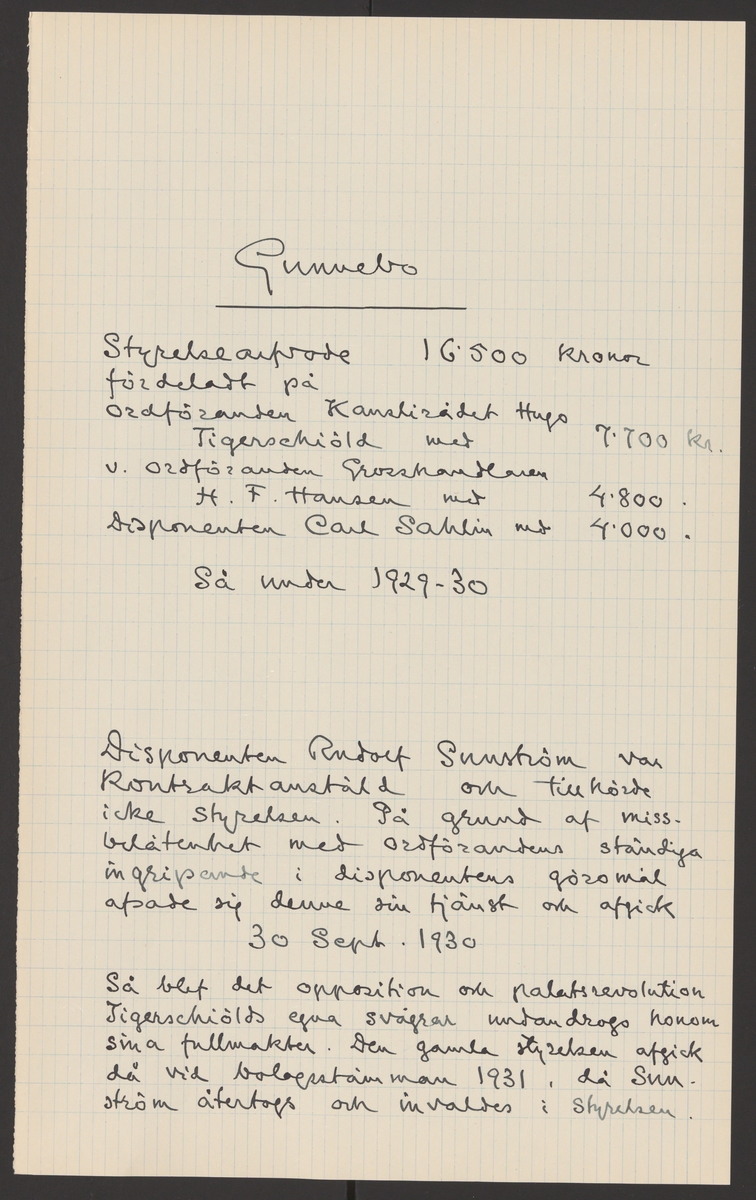 Gunnebo
Styrelsearfvode 16.500 kronor
fördeladt på
ordföranden Kanslirådet Hugo
Tigerschiöld med 7.700 kr.
v. ordföranden Grosshandlaren
H. F. Hansen med 4.800 .
Disponenten Carl Sahlin med 4.000 .
Så under 1929-30
Disponenten Rudolf Sunström var
Kontraktanstäld och tillhörde
icke styrelsen. På grund af miss-
belåtenhet med ordförandens ständiga
ingripande i disponentens göromål
afsade sig denne sin tjänst och afgick
30 Sept. 1930
Så blef det opposition och palatsrevolution
Tigerschiölds egna svågrar undandrogo honom
sina fullmakter. Den gamla styrelsen afgick
då vid bolagsstämman 1931, då Sun-
ström återtogs och invaldes i styrelsen.